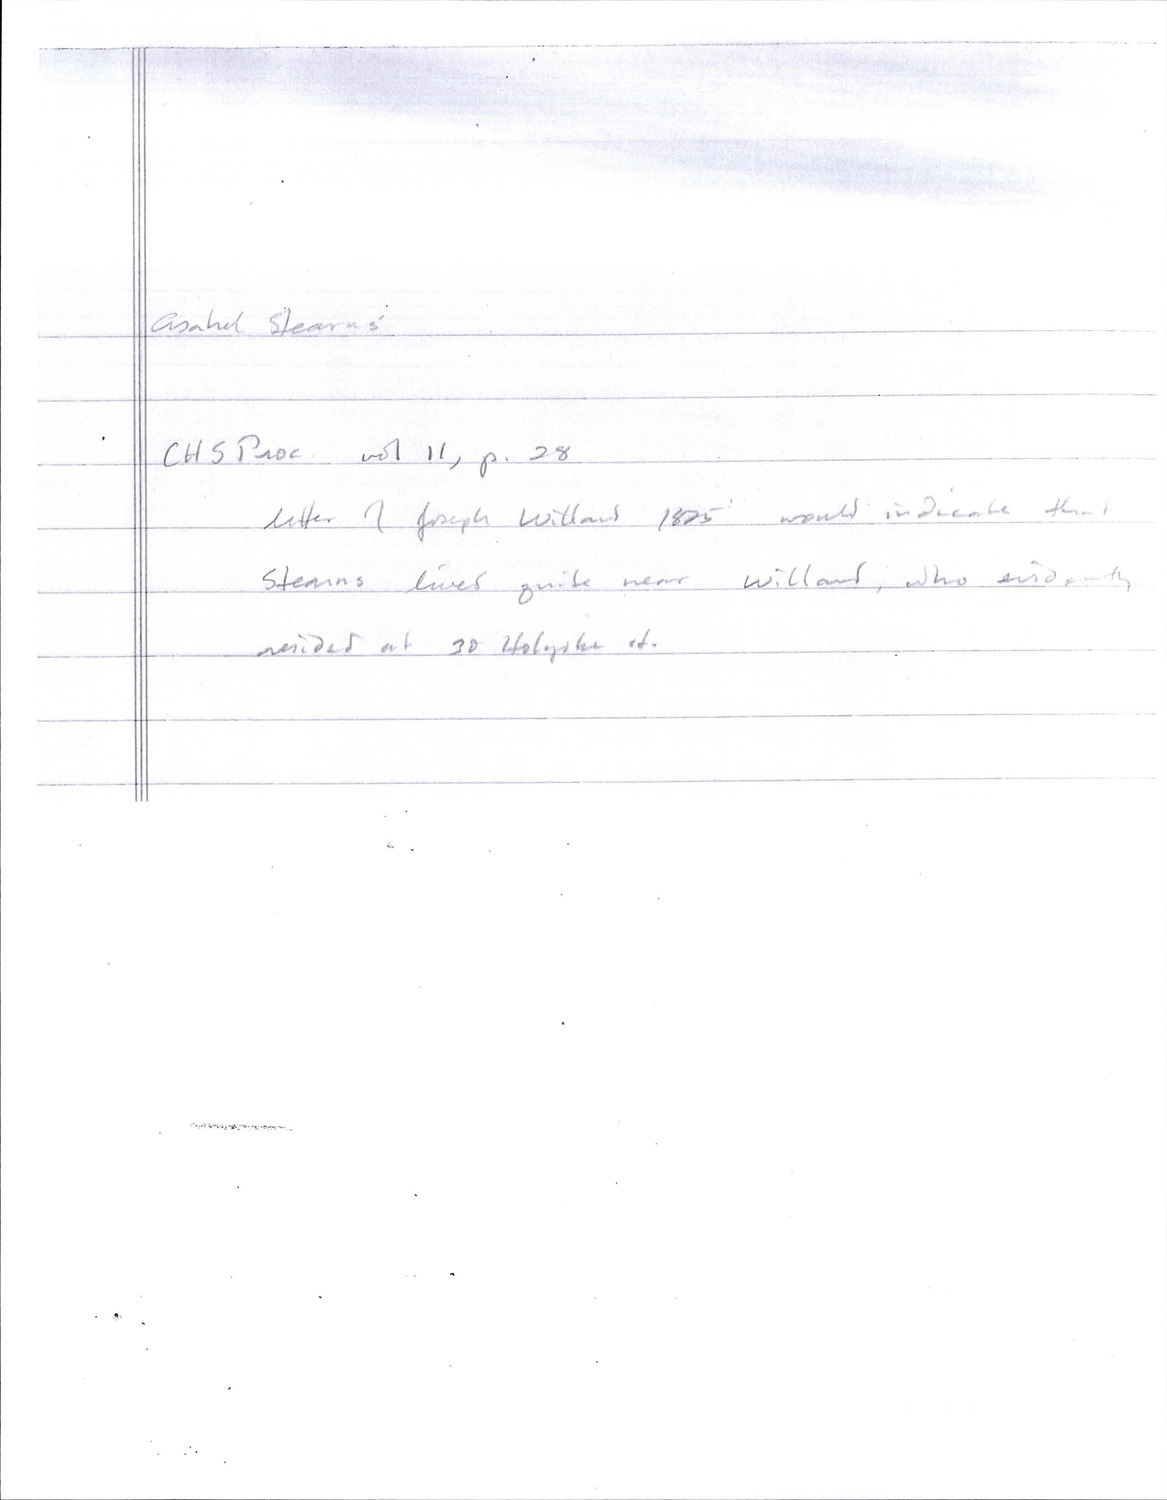 Asahel Stearns
CHS Proc. vol 11, p. 28
letter of Joseph Willard 1825 would indicate that
Stearns lived quite near Willard, who evidently
resided at 30 Holyoke st.